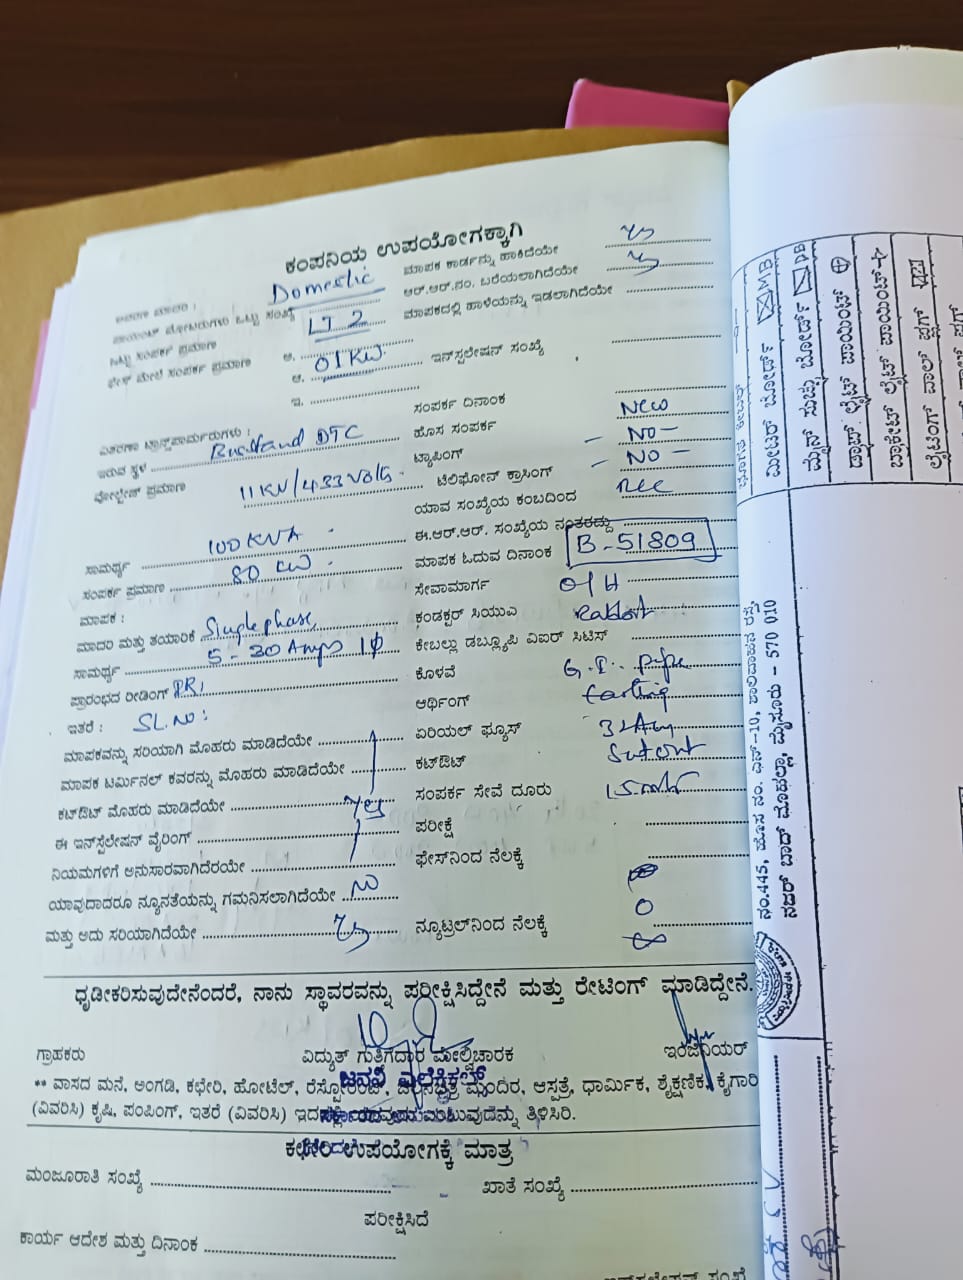 ಕಂಪನಿಯ ಉಪಯೋಗಕ್ಕಾಗಿ
Domestic
ಮಾಪಕ ಕಾರ್ಡನ್ನು ಹಾಕಿದೆಯೇ
ಆರ್.ಆರ್.ನಂ. ಬರೆಯಲಾಗಿದೆಯೇ
ಮಾಪಕದಲ್ಲಿ ಹಾಳೆಯನ್ನು ಇಡಲಾಗಿದೆಯೇ
ಒಟ್ಟು ಸಂಪರ್ಕ ಪ್ರಮಾಣ LT 2
ಫೇಸ್ ಮೇಲೆ ಸಂಪರ್ಕ ಪ್ರಮಾಣ ಆ.
ಆ. 01 KW.
ಇ.
ಇನ್‌ಸ್ಟಲೇಷನ್ ಸಂಖ್ಯೆ
ಸಂಪರ್ಕ ದಿನಾಂಕ
ಹೊಸ ಸಂಪರ್ಕ New
ಟ್ಯಾಪಿಂಗ್ - NO -
ಟೆಲಿಫೋನ್ ಕ್ರಾಸಿಂಗ್ - NO -
ಯಾವ ಸಂಖ್ಯೆಯ ಕಂಬದಿಂದ
ಈ.ಆರ್.ಆರ್. ಸಂಖ್ಯೆಯ ನಂತರದ್ದು
ಇರುವ ಸ್ಥಳ DTC
ವೋಲ್ಟೇಜ್ ಪ್ರಮಾಣ 11KV/433 Volts.
ಸಾಮರ್ಥ್ಯ 100 KVA
ಸಂಪರ್ಕ ಪ್ರಮಾಣ 80 KW.
ಮಾಪಕ :
ಮಾದರಿ ಮತ್ತು ತಯಾರಿಕೆ Single phase,
ಸಾಮರ್ಥ್ಯ 5 - 30 Amps 1ϕ
ಪ್ರಾರಂಭದ ರೀಡಿಂಗ್
ಇತರೆ : SL.NO:
ಮಾಪಕವನ್ನು ಸರಿಯಾಗಿ ಮೊಹರು ಮಾಡಿದೆಯೇ
ಮಾಪಕ ಟರ್ಮಿನಲ್ ಕವರನ್ನು ಮೊಹರು ಮಾಡಿದೆಯೇ
ಕಟ್‌ಔಟ್ ಮೊಹರು ಮಾಡಿದೆಯೇ yes
ಈ ಇನ್‌ಸ್ಟಲೇಷನ್ ವೈರಿಂಗ್
ನಿಯಮಗಳಿಗೆ ಅನುಸಾರವಾಗಿದೆರಯೇ
ಯಾವುದಾದರೂ ನ್ಯೂನತೆಯನ್ನು ಗಮನಿಸಲಾಗಿದೆಯೇ NO
ಮತ್ತು ಅದು ಸರಿಯಾಗಿದೆಯೇ
ಮಾಪಕ ಓದುವ ದಿನಾಂಕ B-51809
ಸೇವಾಮಾರ್ಗ O/H
ಕಂಡಕ್ಟರ್ ಸಿಯುಎ Rabbit
ಕೇಬಲ್ಲು ಡಬ್ಲ್ಯೂಪಿ ವಿಐರ್ ಸಿಟಿಸ್
ಕೊಳವೆ G.I. pipe
ಆರ್ಥಿಂಗ್ Earthing
ಏರಿಯಲ್ ಫ್ಯೂಸ್ 32Am
ಕಟ್‌ಔಟ್
ಸಂಪರ್ಕ ಸೇವೆ ದೂರು
ಪರೀಕ್ಷೆ
ಫೇಸ್‌ನಿಂದ ನೆಲಕ್ಕೆ
0
ನ್ಯೂಟ್ರಲ್‌ನಿಂದ ನೆಲಕ್ಕೆ
ಧೃಡೀಕರಿಸುವುದೇನೆಂದರೆ, ನಾನು ಸ್ಥಾವರವನ್ನು ಪರೀಕ್ಷಿಸಿದ್ದೇನೆ ಮತ್ತು ರೇಟಿಂಗ್ ಮಾಡಿದ್ದೇನೆ.
ಗ್ರಾಹಕರು ವಿದ್ಯುತ್ ಗುತ್ತಿಗೆದಾರ ಮೇಲ್ವಿಚಾರಕ ಇಂಜಿನಿಯರ್
** ವಾಸದ ಮನೆ, ಅಂಗಡಿ, ಕಛೇರಿ, ಹೋಟೆಲ್, ಮಂದಿರ, ಆಸ್ಪತ್ರೆ, ಧಾರ್ಮಿಕ, ಶೈಕ್ಷಣಿಕ, ಕೈಗಾರಿ
(ವಿವರಿಸಿ) ಕೃಷಿ, ಪಂಪಿಂಗ್, ಇತರೆ (ವಿವರಿಸಿ) ತಿಳಿಸಿರಿ.
ಕಛೇರಿ ಉಪಯೋಗಕ್ಕೆ ಮಾತ್ರ
ಮಂಜೂರಾತಿ ಸಂಖ್ಯೆ
ಖಾತೆ ಸಂಖ್ಯೆ
ಪರೀಕ್ಷಿಸಿದೆ
ಕಾರ್ಯ ಆದೇಶ ಮತ್ತು ದಿನಾಂಕ
ಮೀಟರ್ ಬೋರ್ಡ್ MB
ಮೈನ್ ಸುಚ್ಚು ಬೋರ್ಡ್ DB
ಡ್ರಾಪ್ ಲೈಟ್ ಪಾಯಿಂಟ್
ಬ್ರಾಕೇಟ್ ಲೈಟ್ ಪಾಯಿಂಟ್
ಲೈಟಿಂಗ್ ವಾಲ್ ಪ್ಲಗ್
ನಂ.445, ಹೊಸ ನಂ. ಎನ್-10,
ಮೈಸೂರು - 570 010